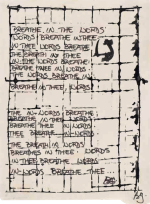 BREATHE IN THE WORDS
WORDS BREATHE IN THEE
IN THEE WORDS BREATHE
THE BREATH IN THEE
IN THE WORDS BREATHE
BREATHE THEE IN WORDS
THE WORDS BREATHE IN
BREATHE IN THEE WORDS
IN WORDS BREATHE
BREATHE IN WORDS
BREATHE THEE IN WORDS
THEE BREATHE WORDS
THE BREATH IS WORDS
BREATHES IN THEE WORDS
IN THEE BREATHE WORDS
IN WORDS BREATHE THEE